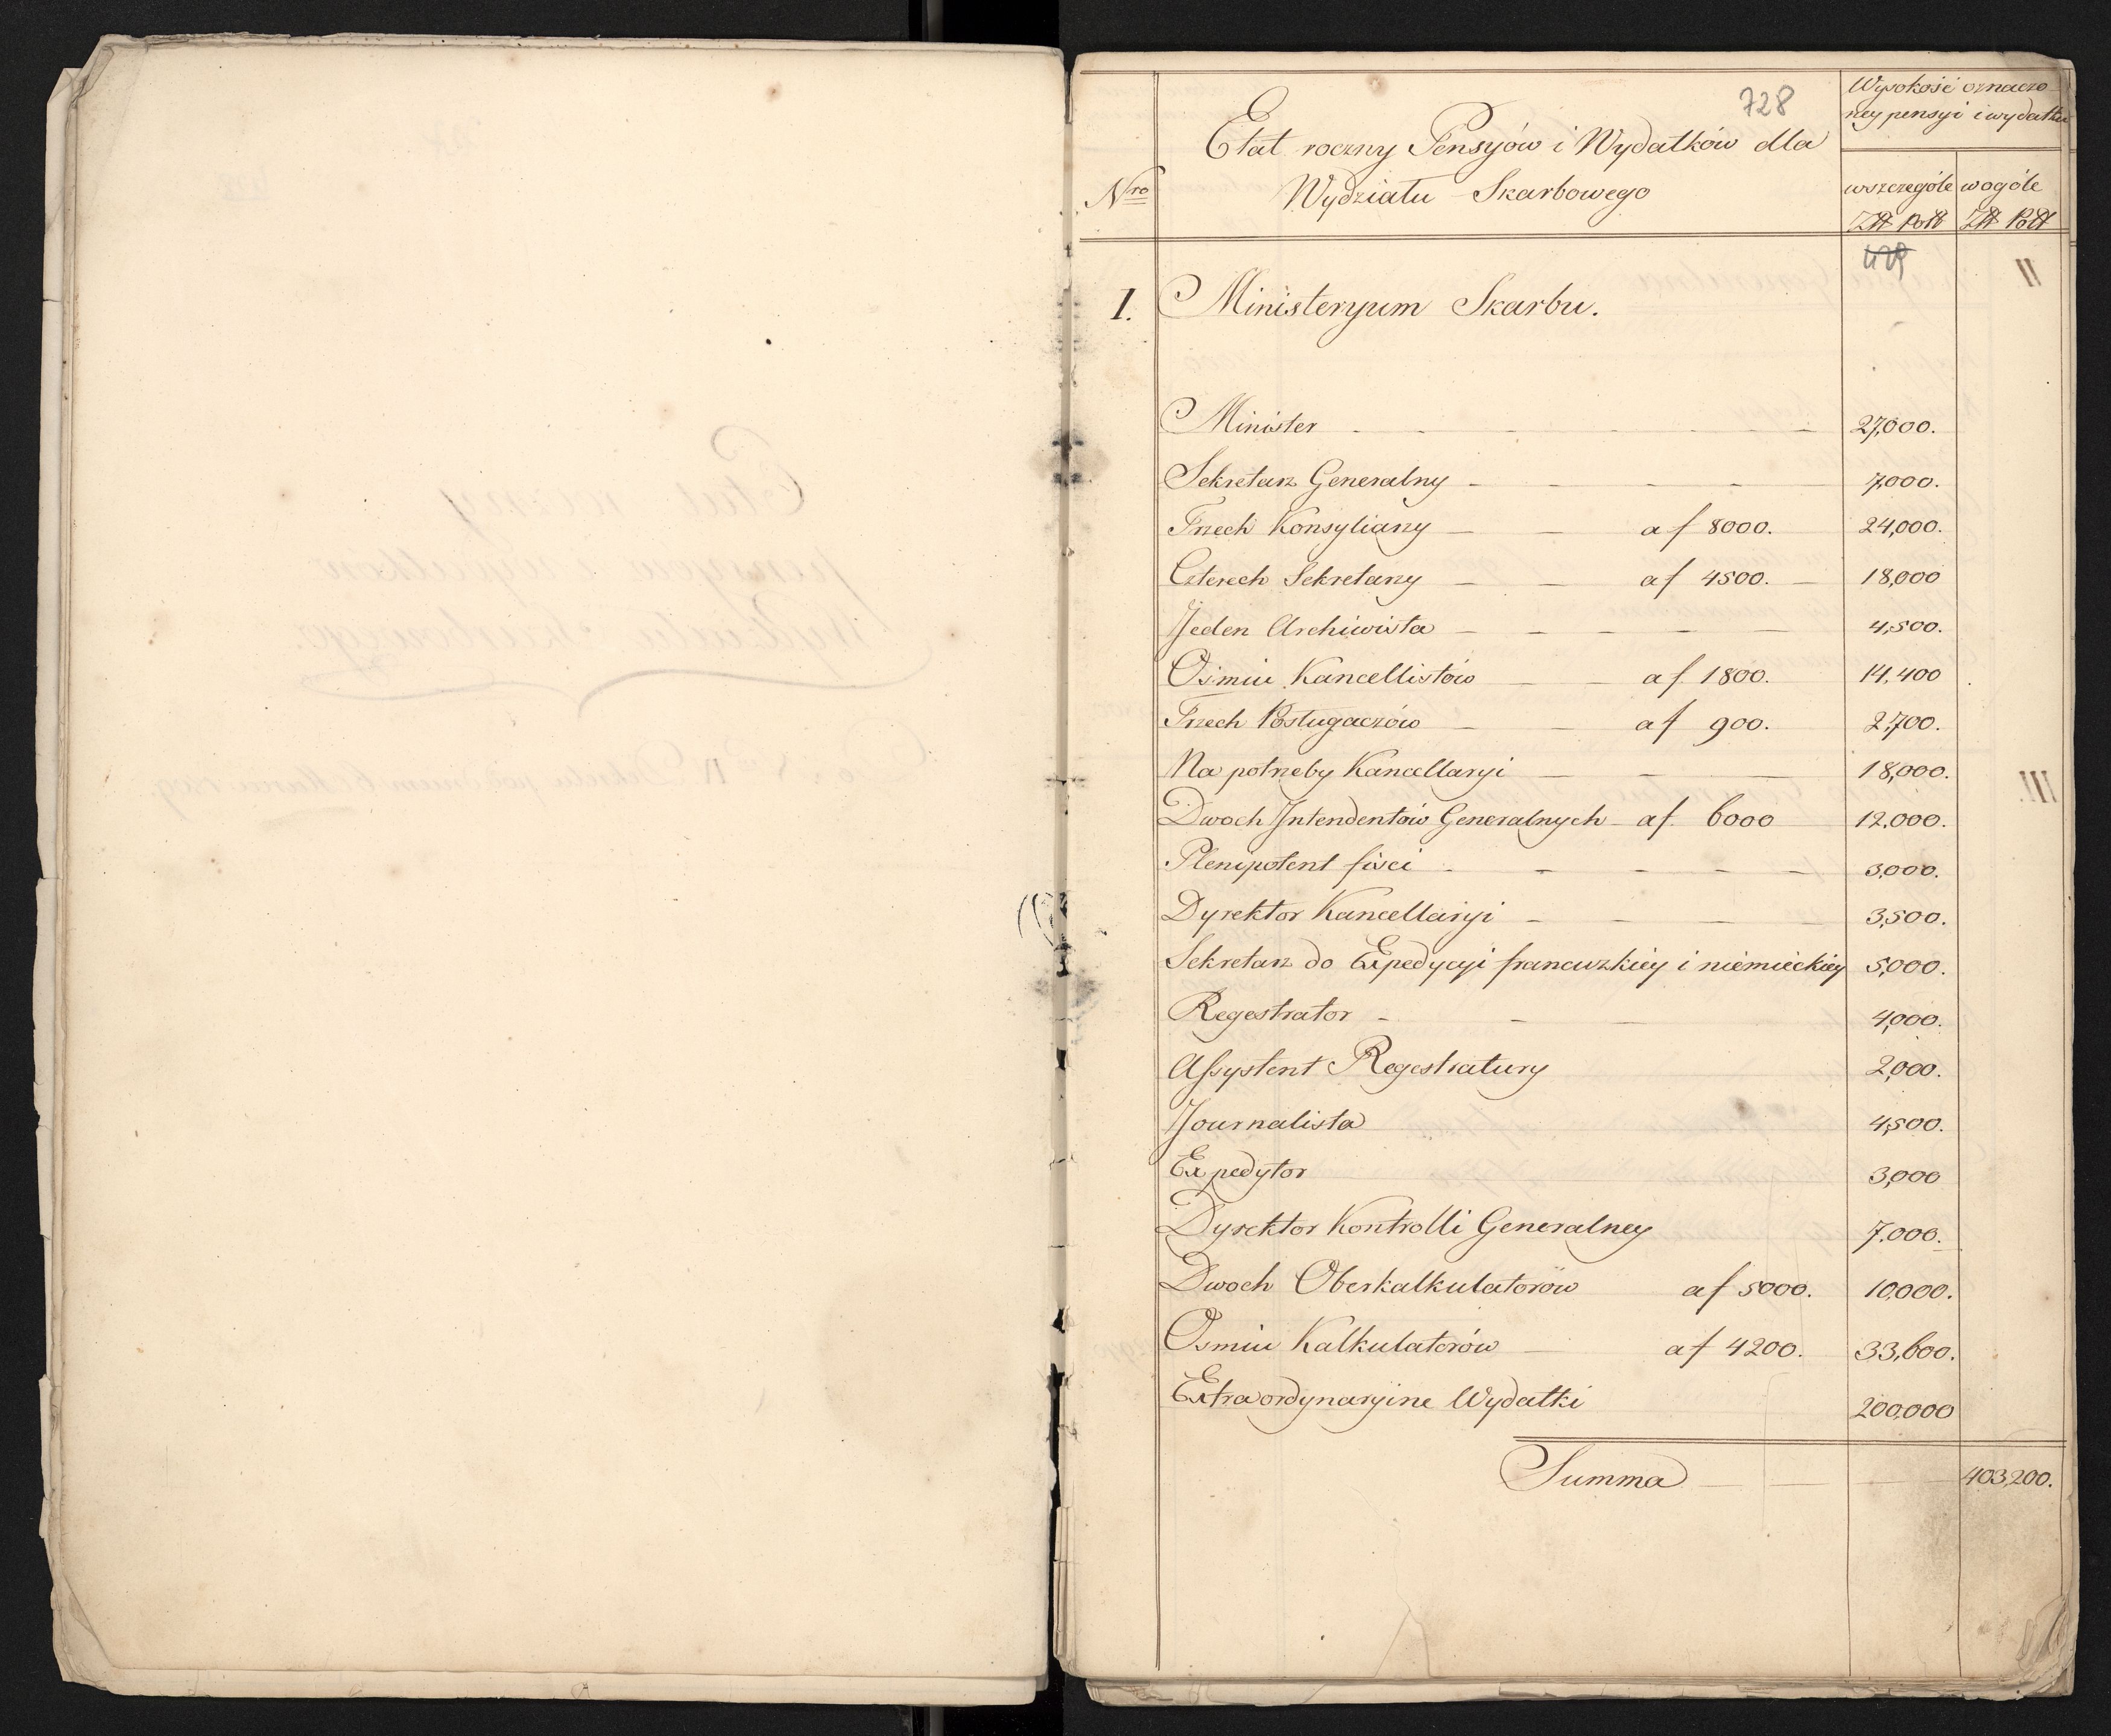 728
Nro
Etat roczny Pensyów i Wydatków dla
Wydziału Skarbowego
Wysokość oznaczo
ney pensyi i wydatku
wszczególe wogóle
Złt Pol Złt Pol
429
I. Ministeryum Skarbu.
Minister - - - - - 27,000.
Sekretarz Generalny - - - - 7,000.
Trzech Konsyliarzy - - a f 8000. 24,000.
Czterech Sekretarzy - - a f 4500. - 18,000
Jeden Archiwista - - - - - 4,500.
Ośmiu Kancellistów - - a f 1800. 14,400
Trzech Posługaczów - - a f 900. 2,700.
Na potrzeby Kancellaryi - - - 18,000.
Dwoch Intendentów Generalnych - a f. 6000 12,000.
Plenipotent fisci - - - - - 3,000.
Dyrektor Kancellaryi - - - - 3,500.
Sekretarz do Expedycyi francuzkiey i niemieckiey 5,000.
Regestrator - - - 4,000.
Assystent Regestratury 2,000.
Journalista 4,500.
Expedytor 3,000
Dyrektor Kontrolli Generalney 7,000.
Dwoch Oberkalkulatorów a f 5000. 10,000.
Osmiu Kalkulatorów - a f 4200. 33,600.
Extraordynaryine Wydatki 200,000
Summa - - - 403,200.